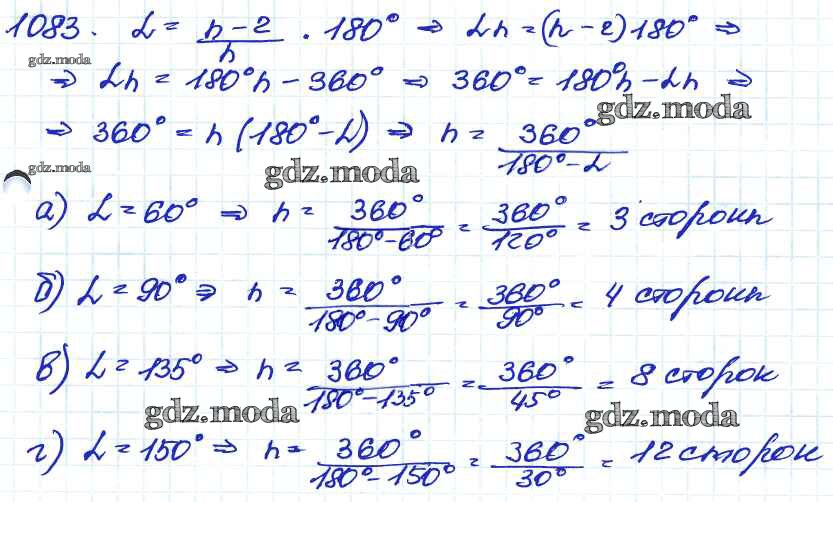 1083. L = n - 2 / n · 180° ⇒ Ln = (n - 2) 180° ⇒
gdz.moda
⇒ Ln = 180°n - 360° ⇒ 360° = 180°n - Ln ⇒
gdz.moda
⇒ 360° = n (180° - L) ⇒ n = 360° / 180° - L
gdz.moda
gdz.moda
а) L = 60° ⇒ n = 360° / 180° - 60° = 360° / 120° = 3 стороны
б) L = 90° ⇒ n = 360° / 180° - 90° = 360° / 90° = 4 стороны
в) L = 135° ⇒ n = 360° / 180° - 135° = 360° / 45° = 8 сторон
gdz.moda
gdz.moda
г) L = 150° ⇒ n = 360° / 180° - 150° = 360° / 30° = 12 сторон